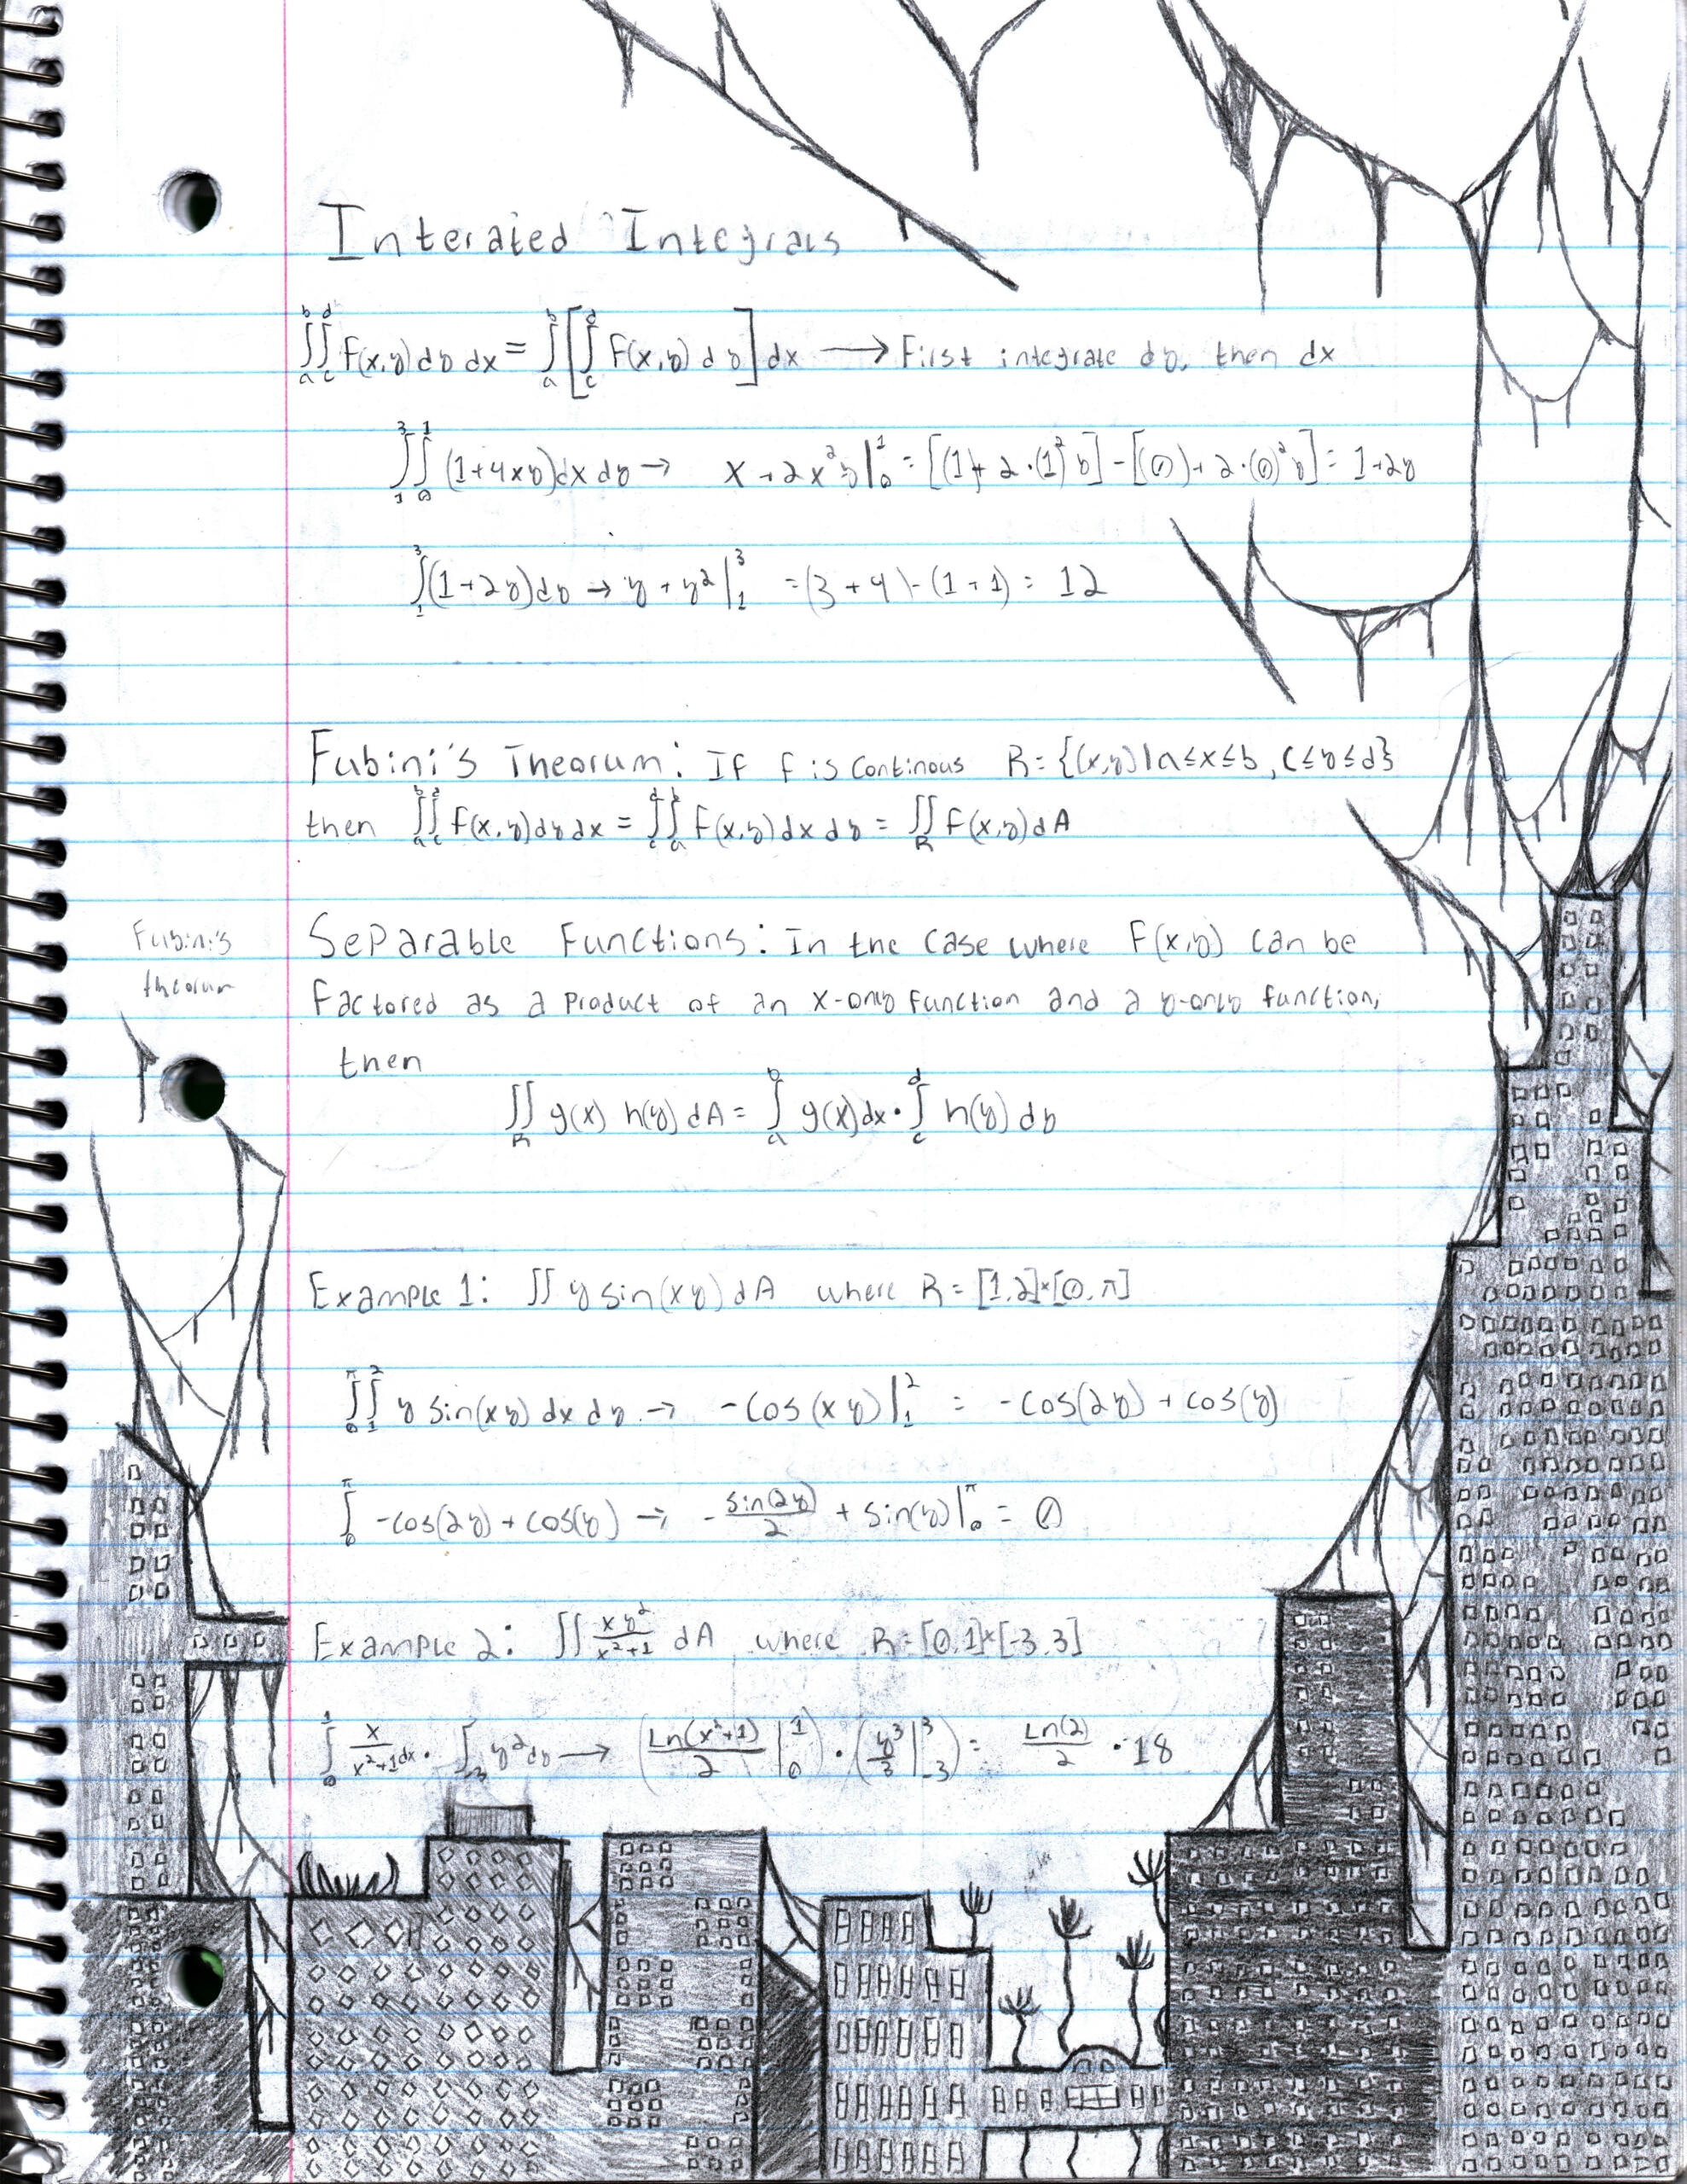 Interated Integrals
∫_a^b ∫_c^d F(x,y) dy dx = ∫_a^b [∫_c^d F(x,y) dy] dx → First integrate dy, then dx
∫_1^3 ∫_0^1 (1+4xy)dx dy → x+2x²y|_0^1 = [(1)+2·(1)²y]-[(0)+2·(0)²y] = 1+2y
∫_1^3 (1+2y)dy → y+y²|_1^3 = (3+9)-(1+1) = 12
Fubini's Theorum: If f is Continous R={(x,y)|a≤x≤b, c≤y≤d}
then ∫_a^b ∫_c^d F(x,y)dy dx = ∫_c^d ∫_a^b F(x,y)dx dy = ∬_R F(x,y)dA
Fubini's
theorum
Separable Functions: In the Case where F(x,y) can be
Factored as a Product of an x-only Function and a y-only function,
then
∬_R g(x) h(y) dA = ∫_a^b g(x)dx · ∫_c^d h(y) dy
Example 1: ∬ y sin(xy) dA where R=[1,2]×[0,π]
∫_0^π ∫_1^2 y sin(xy) dx dy → -cos(xy)|_1^2 = -cos(2y)+cos(y)
∫_0^π -cos(2y)+cos(y) → -sin(2y)/2 + sin(y)|_0^π = 0
Example 2: ∬ xy²/x²+1 dA where R=[0,1]×[-3,3]
∫_0^1 x/x²+1 dx · ∫_-3 y²dy → (Ln(x²+1)/2|_0^1) · (y³/3|_-3^3) = Ln(2)/2 · 18